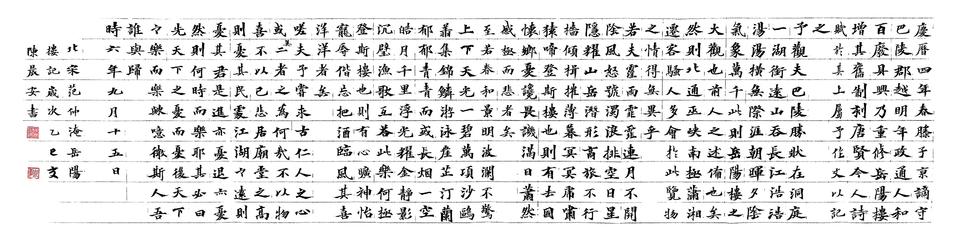 慶曆四年春滕子京謫守
巴陵郡越明年政通人和
百廢具興乃重修岳陽樓
增其舊制刻唐賢今人詩
賦於其上屬予作文以記
之
予觀夫巴陵勝狀在洞庭
一湖銜遠山吞長江浩浩
湯湯橫無際涯朝暉夕陰
氣象萬千此則岳陽樓之
大觀也前人之述備矣
然則北通巫峽南極瀟湘
遷客騷人多會於此覽物
之情得無異乎
若夫霪雨霏霏連月不開
陰風怒號濁浪排空日星
隱耀山岳潛形商旅不行
檣傾楫摧薄暮冥冥虎嘯
猿啼登斯樓也則有去國
懷鄉憂讒畏譏滿目蕭然
感極而悲者矣
至若春和景明波瀾不驚
上下天光一碧萬頃沙鷗
翔集錦鱗游泳岸芷汀蘭
郁郁青青而或長煙一空
皓月千里浮光耀金靜影
沉璧漁歌互答此樂何極
登斯樓也則有心曠神怡
寵辱偕忘把酒臨風其喜
洋洋者矣
嗟夫予嘗求古仁人之心
或異二者之為何哉不以物
喜不以己悲居廟堂之高
則憂其民處江湖之遠則
憂其君是進亦憂退亦憂
然則何時而樂耶其必曰
先天下之憂而憂後天下
之樂而樂歟噫微斯人吾
誰與歸
時六年九月十五日
北宋范仲淹岳陽
樓記歲次乙巳
陳晨安書